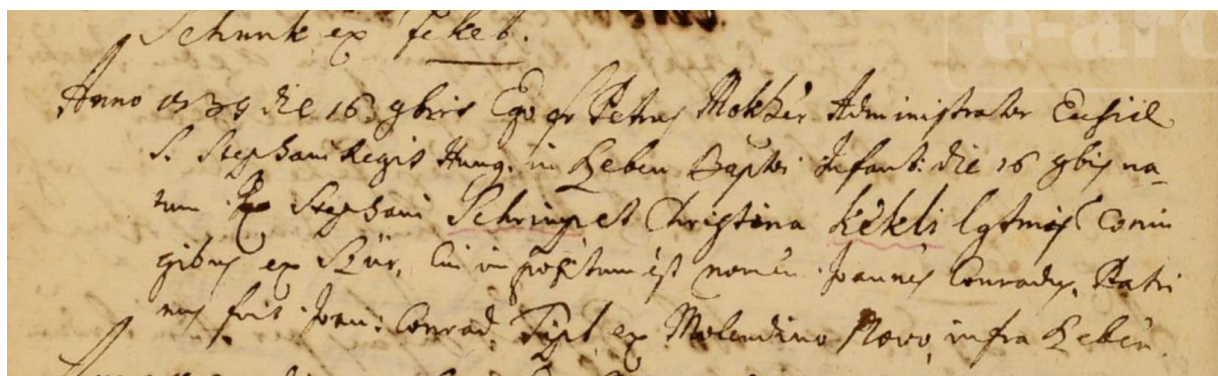 Schunk ex Feket.
Anno 1739 die 16 9bris Ego Petrus Mokžer Administrator Ecclsie
S. Stephani Regis Hung. in Leben Baptsi Infant: die 16 9bris na
tum Stephani Schrimp et Christina Kékli lgtmis Coniu
gibus ex Szür, Cui impositum est nomen Joannes Conradus, Patri
nus fuit Joan: Conrad, ex Molendino Novo, infra Leben.
e-arc